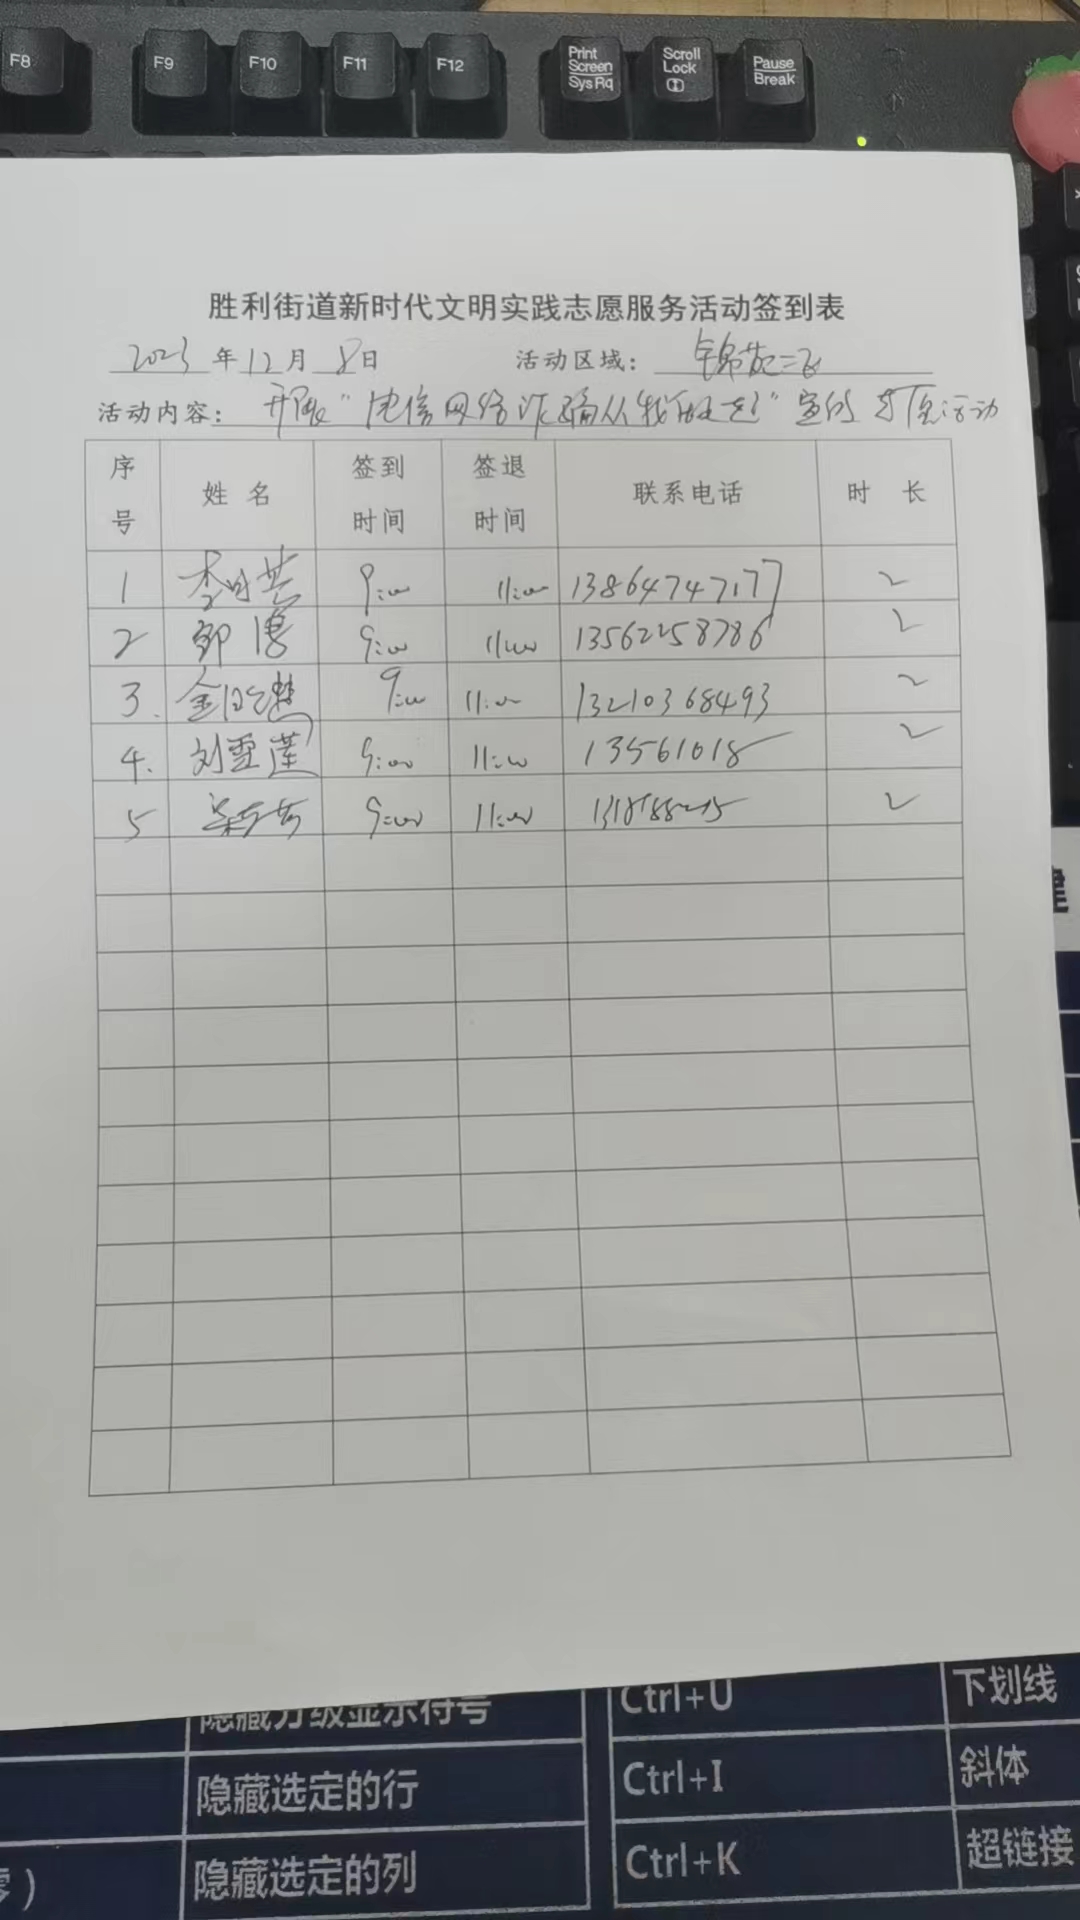 F8 F9 F10 F11 F12 Print Screen SysRq Scroll Lock Pause Break
胜利街道新时代文明实践志愿服务活动签到表
2023年12月8日 活动区域：锦苑二区
活动内容：开展"电信网络诈骗从我做起"宣传志愿活动
序号 姓名 签到时间 签退时间 联系电话 时长
1 9:00 11:00 13864747177 2
2 邹博 9:00 11:00 13562258786 2
3. 9:00 11:00 13210368493 2
4. 刘雪莲 9:00 11:00 2
5 9:00 11:00 2
隐藏选定的行
隐藏选定的列
Ctrl+U 下划线
Ctrl+I 斜体
Ctrl+K 超链接